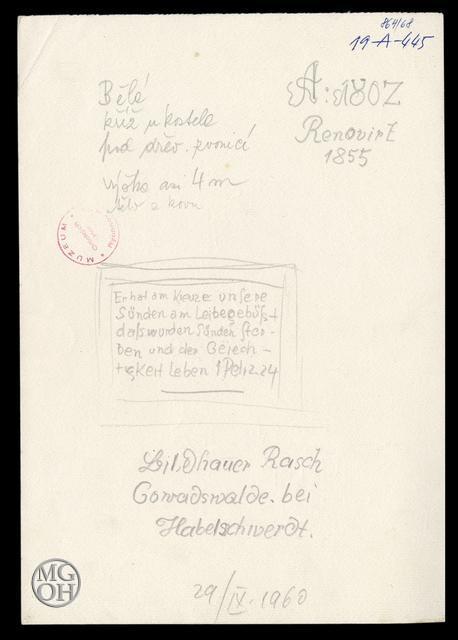 864/68
19-A-445
Bělá
kříž u kostela
pod dřev. zvonicí
výška asi 4 m
Tělo z kovu
A: 1802
Renovirt
1855
MUZEUM
Er hat am Kreuze unsere
Sünden am Leibe gebüßt
daß wir den Sünden ster-
ben und der Gerech-
tigkeit Leben 1 Petr 2.24
Bildhauer Rasch
Conradswalde. bei
Habelschwerdt.
29/IX. 1960
MG
OH